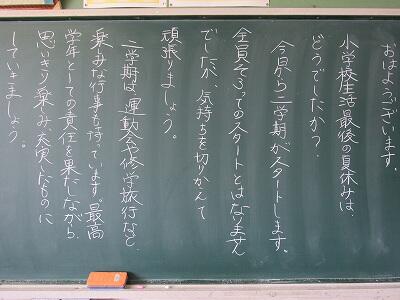 おはようございます。
小学校生活最後の夏休みは、
どうでしたか？
今日から二学期がスタートします。
全員そろってのスタートとはなりません
でしたが、気持ちを切りかえて
頑張りましょう。
二学期は、運動会や修学旅行など、
楽しみな行事も待っています。最高
学年としての責任を果たしながら、
思いきり楽しみ、充実したものに
していきましょう。